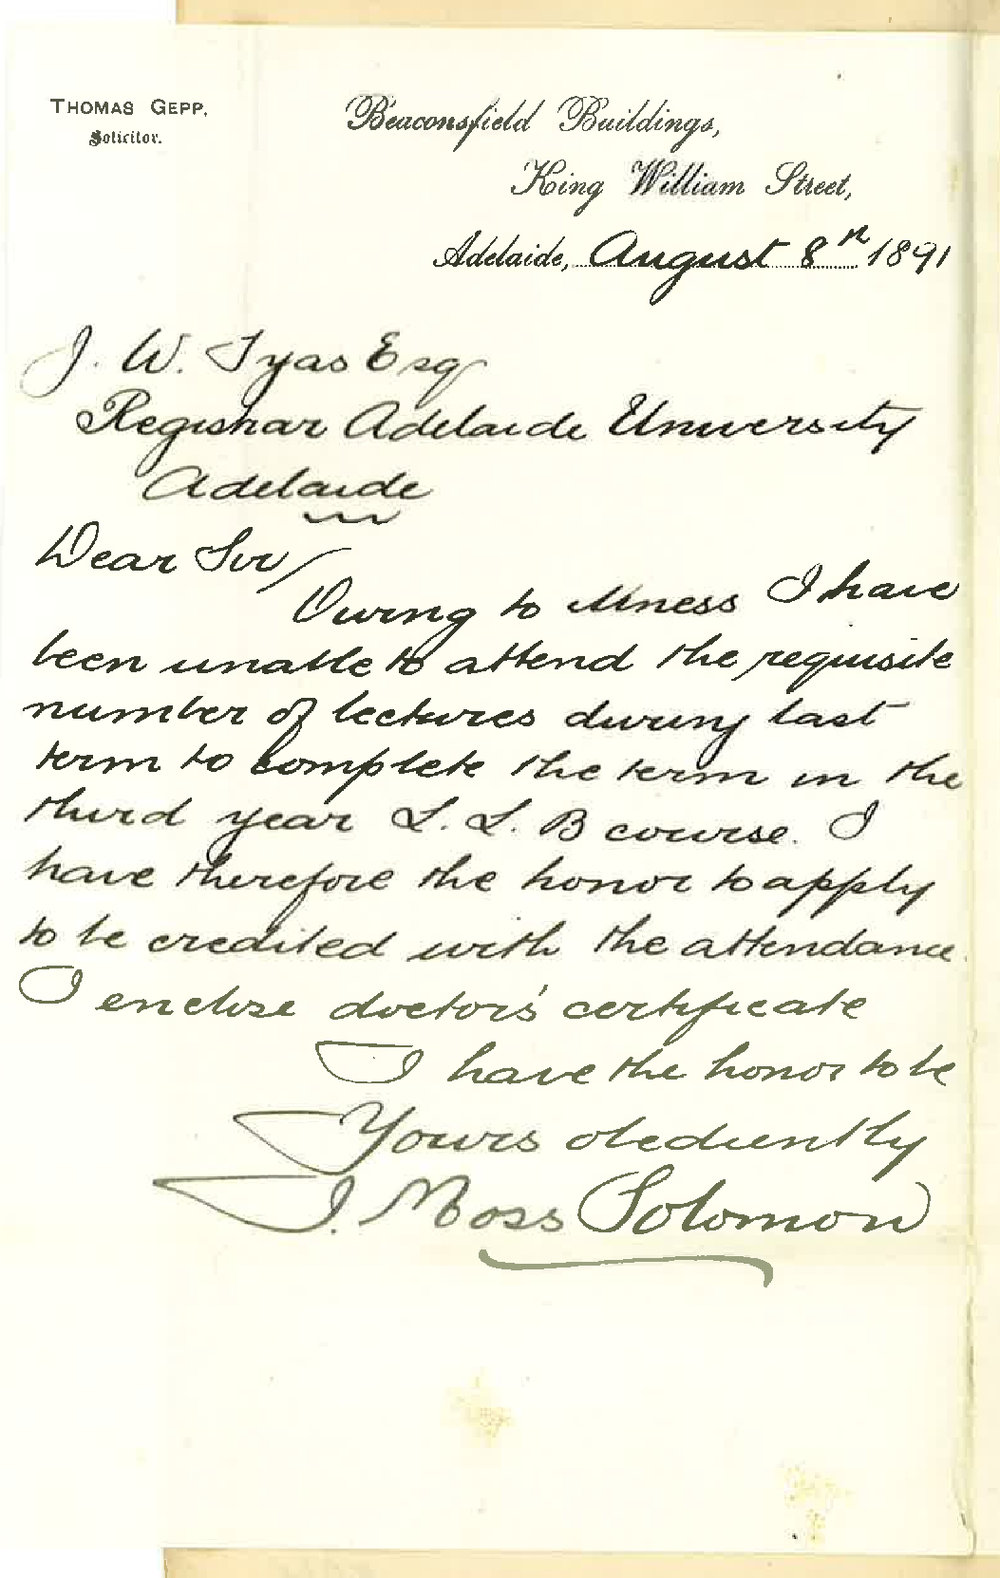 THOMAS GEPP,
Solicitor.
Beaconsfield Buildings,
King William Street,
Adelaide, August 8th 1891
J. W. Tyas Esq
Registrar Adelaide University
Adelaide
Dear Sir/
Owing to illness I have
been unable to attend the requisite
number of lectures during last
term to complete the term in the
third year L. L. B course. I
have therefore the honor to apply
to be credited with the attendance.
I enclose doctor's certificate
I have the honor to be
Yours obediently
I. Moss Solomon